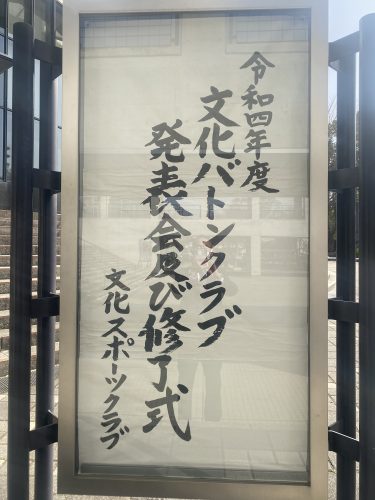 令和四年度
文化バトンクラブ
発表会及び修了式
文化スポーツクラブ